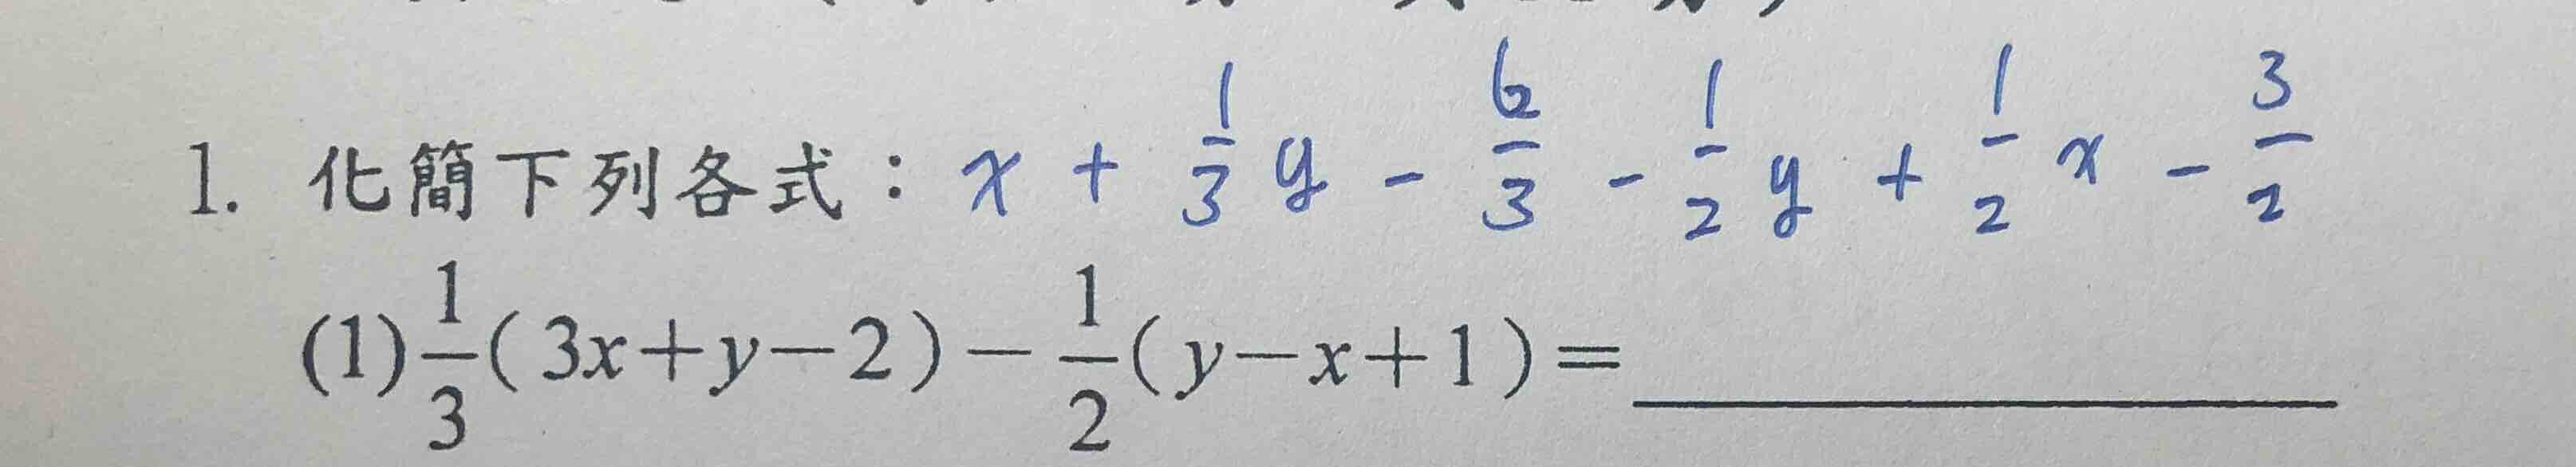 1. 化簡下列各式： x + 1/3 y - 6/3 - 1/2 y + 1/2 x - 3/2
(1) 1/3 ( 3x+y-2 ) - 1/2 ( y-x+1 ) = ________